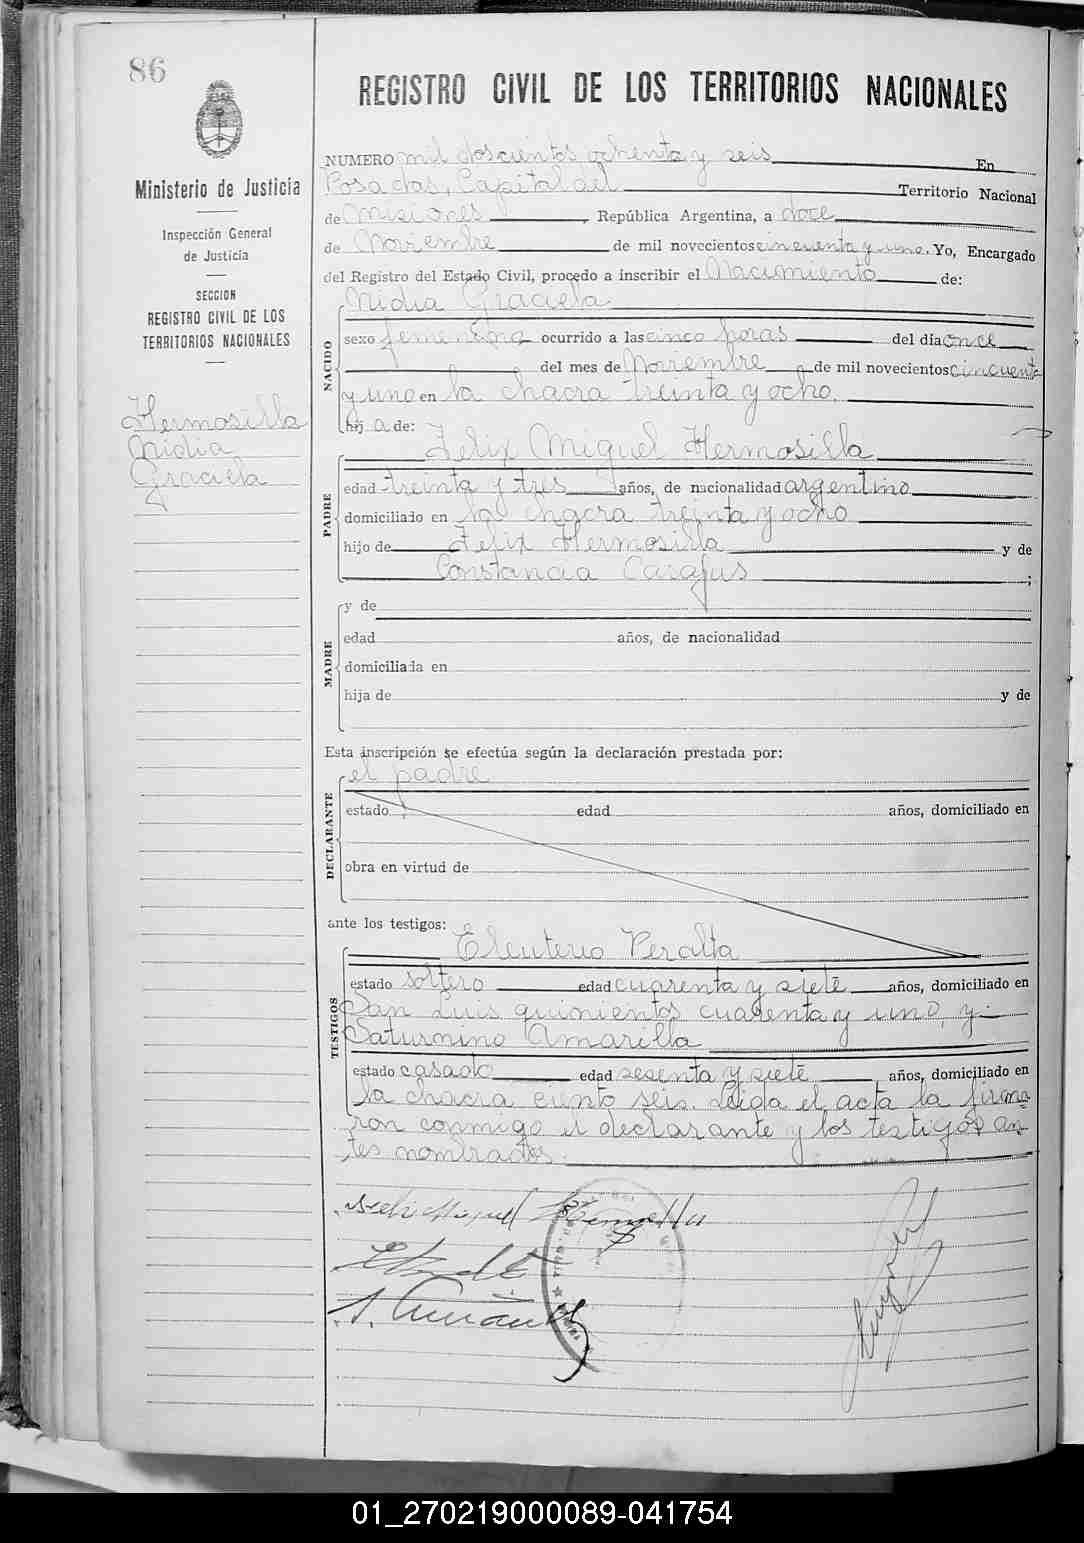 86
Ministerio de Justicia
Inspección General
de Justicia
SECCION
REGISTRO CIVIL DE LOS
TERRITORIOS NACIONALES
Hermosilla
Nidia
Graciela
REGISTRO CIVIL DE LOS TERRITORIOS NACIONALES
NUMERO mil doscientos ochenta y seis En
Posadas, Capital del Territorio Nacional
de Misiones, República Argentina, a doce
de Noviembre de mil novecientos cincuenta y uno. Yo, Encargado
del Registro del Estado Civil, procedo a inscribir el Nacimiento de:
NACIDO
Nidia Graciela
sexo femenino ocurrido a las cinco horas del día once
del mes de Noviembre de mil novecientos cincuenta
y uno en la chacra treinta y ocho.
hij a de:
PADRE
Felix Miguel Hermosilla
edad treinta y tres años, de nacionalidad argentino
domiciliado en la chacra treinta y ocho
hijo de Felix Hermosilla y de
Constancia ;
MADRE
y de
edad años, de nacionalidad
domiciliada en
hija de y de
Esta inscripción se efectúa según la declaración prestada por:
DECLARANTE
el padre
estado edad años, domiciliado en
obra en virtud de
ante los testigos:
TESTIGOS
Eleuterio Peralta
estado soltero edad cuarenta y siete años, domiciliado en
San Luis quinientos cuarenta y uno, y
Saturnino Amarilla
estado casado edad sesenta y siete años, domiciliado en
la chacra ciento seis. Leida el acta la firma-
ron conmigo el declarante y los testigos an-
tes nombrados.
01_270219000089-041754